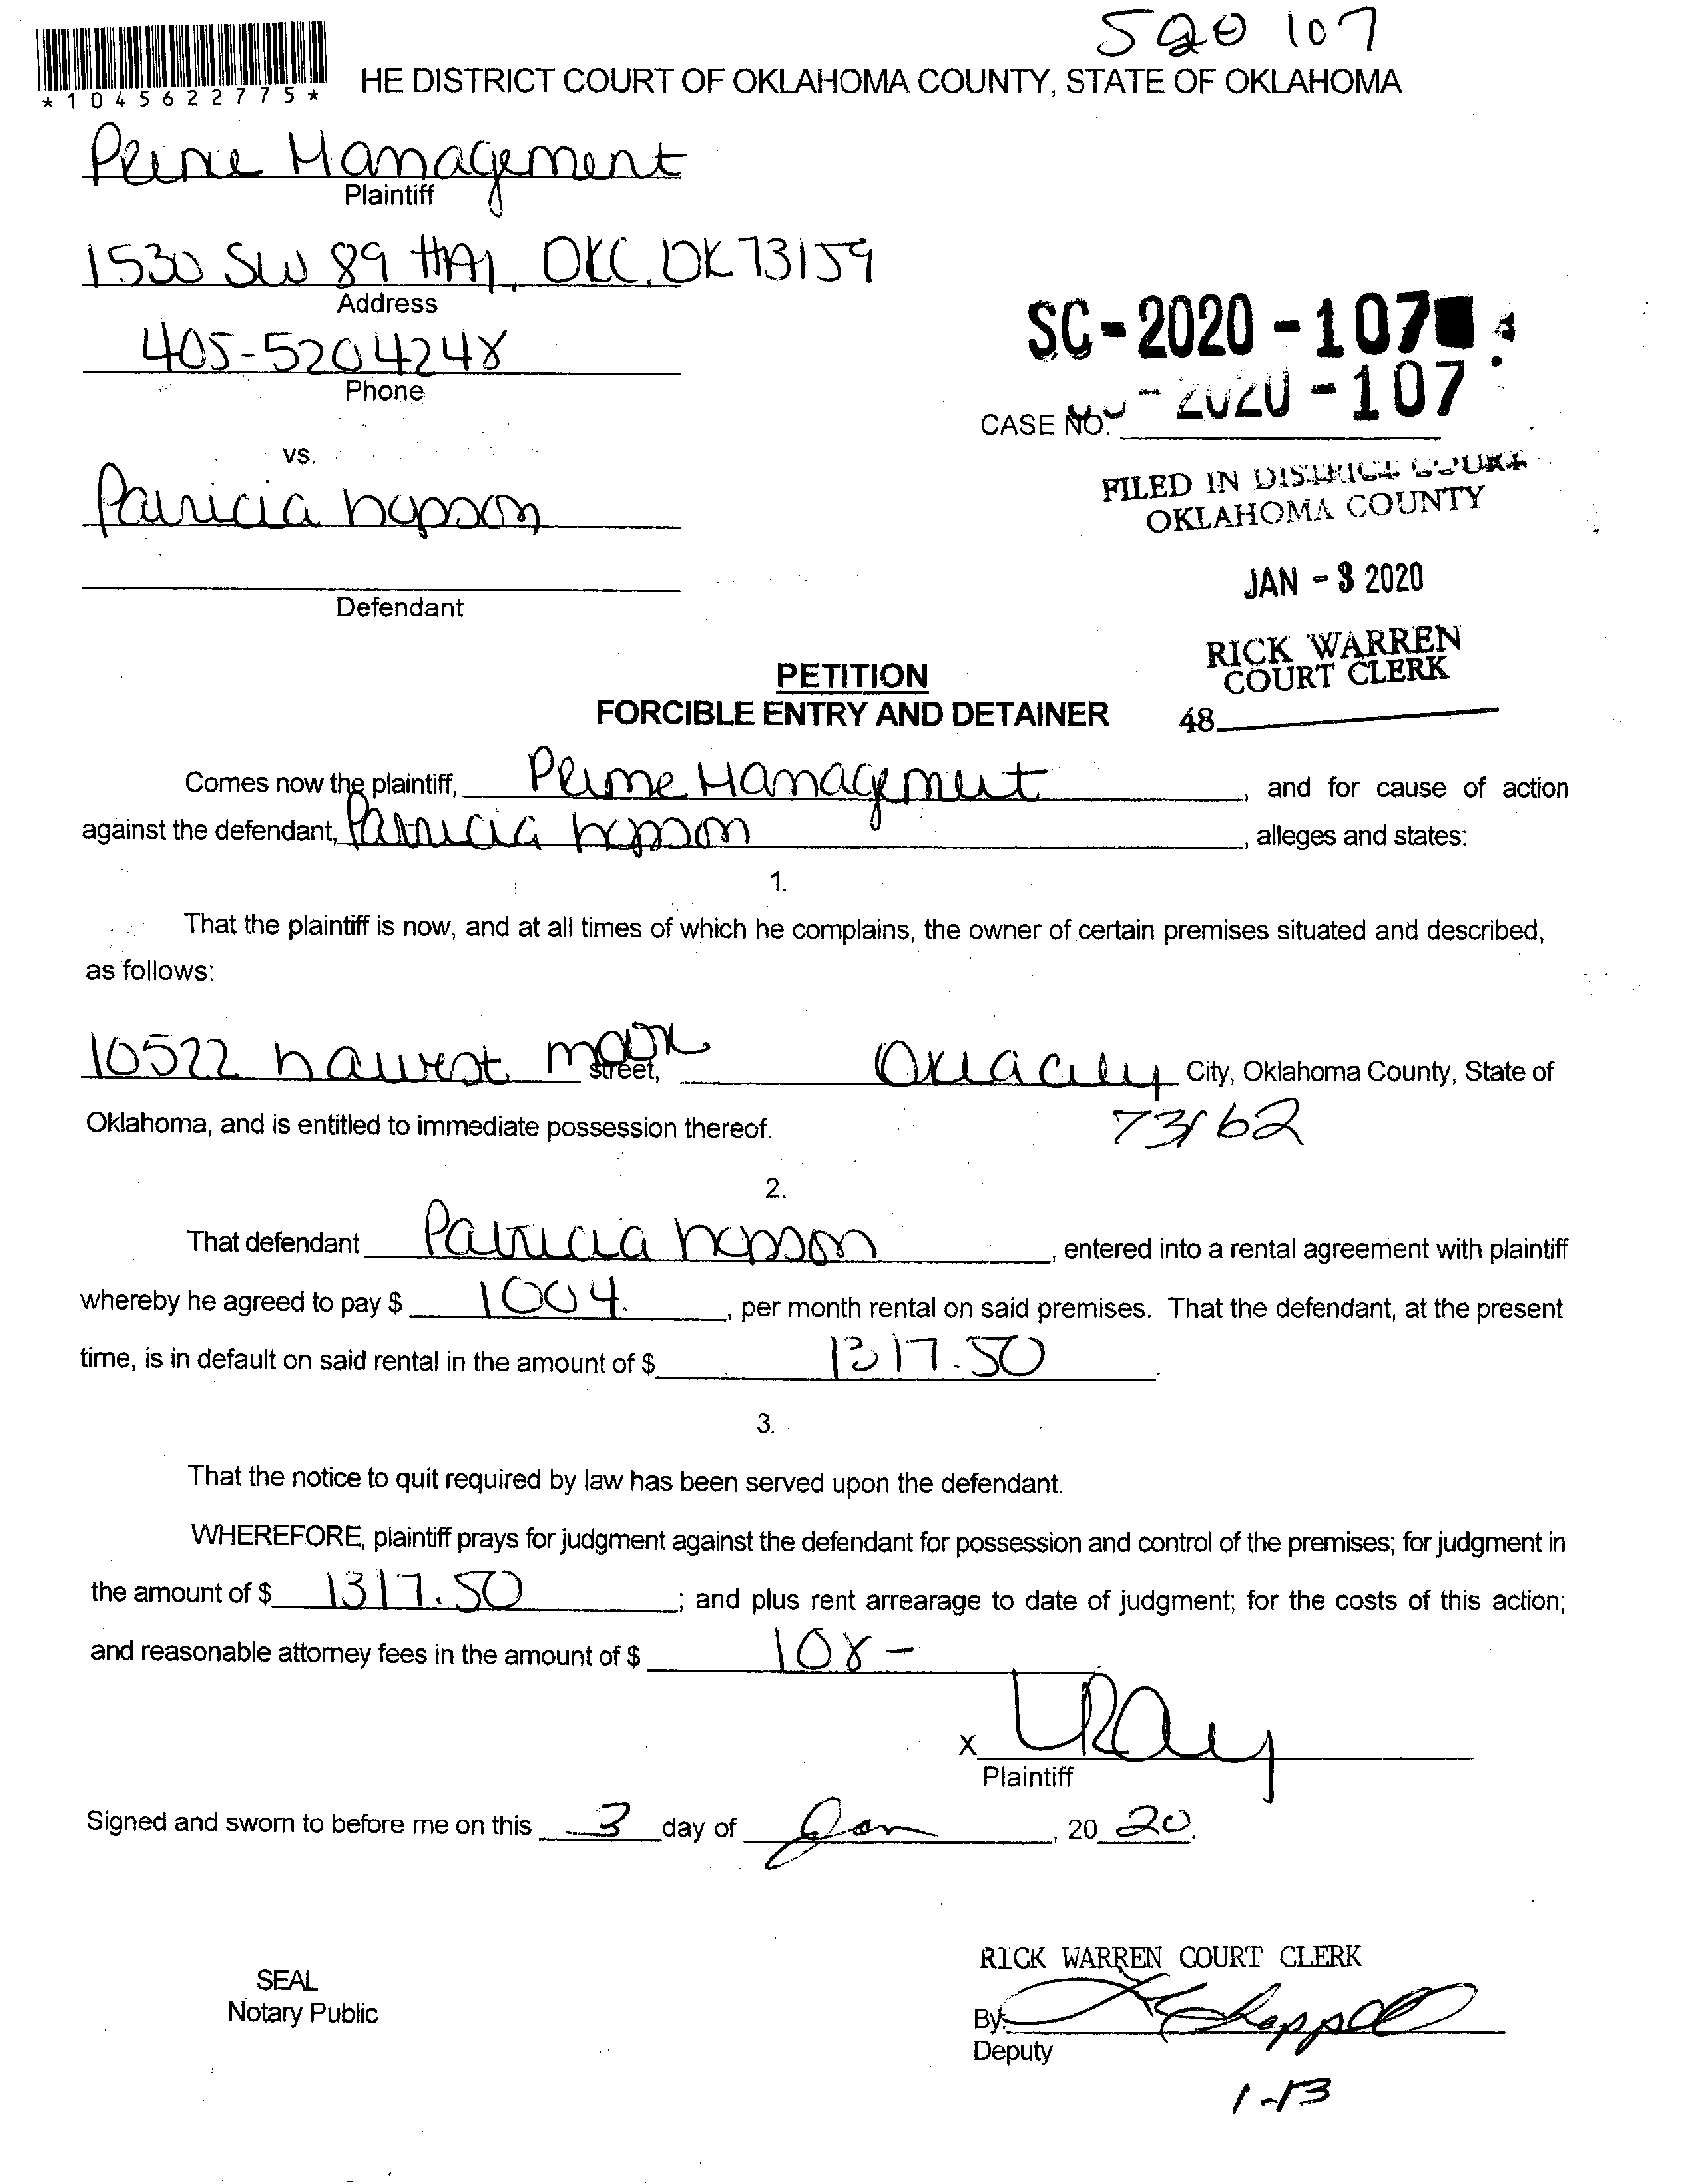 520 107
*1045622775*
HE DISTRICT COURT OF OKLAHOMA COUNTY, STATE OF OKLAHOMA
Prime Management
Plaintiff
1530 SW 89 #A1, OKC, OK 73159
Address
405-5204248
Phone
SC-2020-107
-2020-107
CASE NO.
vs.
Patricia hopson
FILED IN DISTRICT COURT
OKLAHOMA COUNTY
JAN -3 2020
Defendant
RICK WARREN
COURT CLERK
48
PETITION
FORCIBLE ENTRY AND DETAINER
Comes now the plaintiff, Prime Management, and for cause of action
against the defendant, Patricia hopson, alleges and states:
1.
That the plaintiff is now, and at all times of which he complains, the owner of certain premises situated and described,
as follows:
10522 harvest moon street, Okla city City, Oklahoma County, State of
Oklahoma, and is entitled to immediate possession thereof. 73162
2.
That defendant Patricia hopson, entered into a rental agreement with plaintiff
whereby he agreed to pay $ 1004., per month rental on said premises. That the defendant, at the present
time, is in default on said rental in the amount of $ 1317.50.
3.
That the notice to quit required by law has been served upon the defendant.
WHEREFORE, plaintiff prays for judgment against the defendant for possession and control of the premises; for judgment in
the amount of $ 1317.50; and plus rent arrearage to date of judgment; for the costs of this action;
and reasonable attorney fees in the amount of $ 108-
X LRay
Plaintiff
Signed and sworn to before me on this 3 day of Jan, 20 20.
RICK WARREN COURT CLERK
SEAL
Notary Public
By:
Deputy
1-13